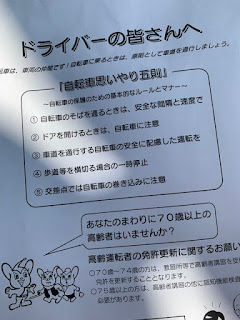 ドライバーの皆さんへ
転車は、車両の仲間です!自転車に乗るときは、原則として車道を通行しましょう。
『自転車思いやり五則』
~自転車の保護のための基本的なルールとマナー~
① 自転車のそばを通るときは、安全な間隔と速度で
② ドアを開けるときは、自転車に注意
③ 車道を通行する自転車の安全に配慮した運転を
④ 歩道等を横切る場合の一時停止
⑤ 交差点では自転車の巻き込みに注意
あなたのまわりに70歳以上の
高齢者はいませんか?
高齢運転者の免許更新に関するお願い
○70歳~74歳の方は、教習所等で高齢者講習を受
許を更新することとなります。
○75歳以上の方は、高齢者講習の他に認知機能検査
必要があります。